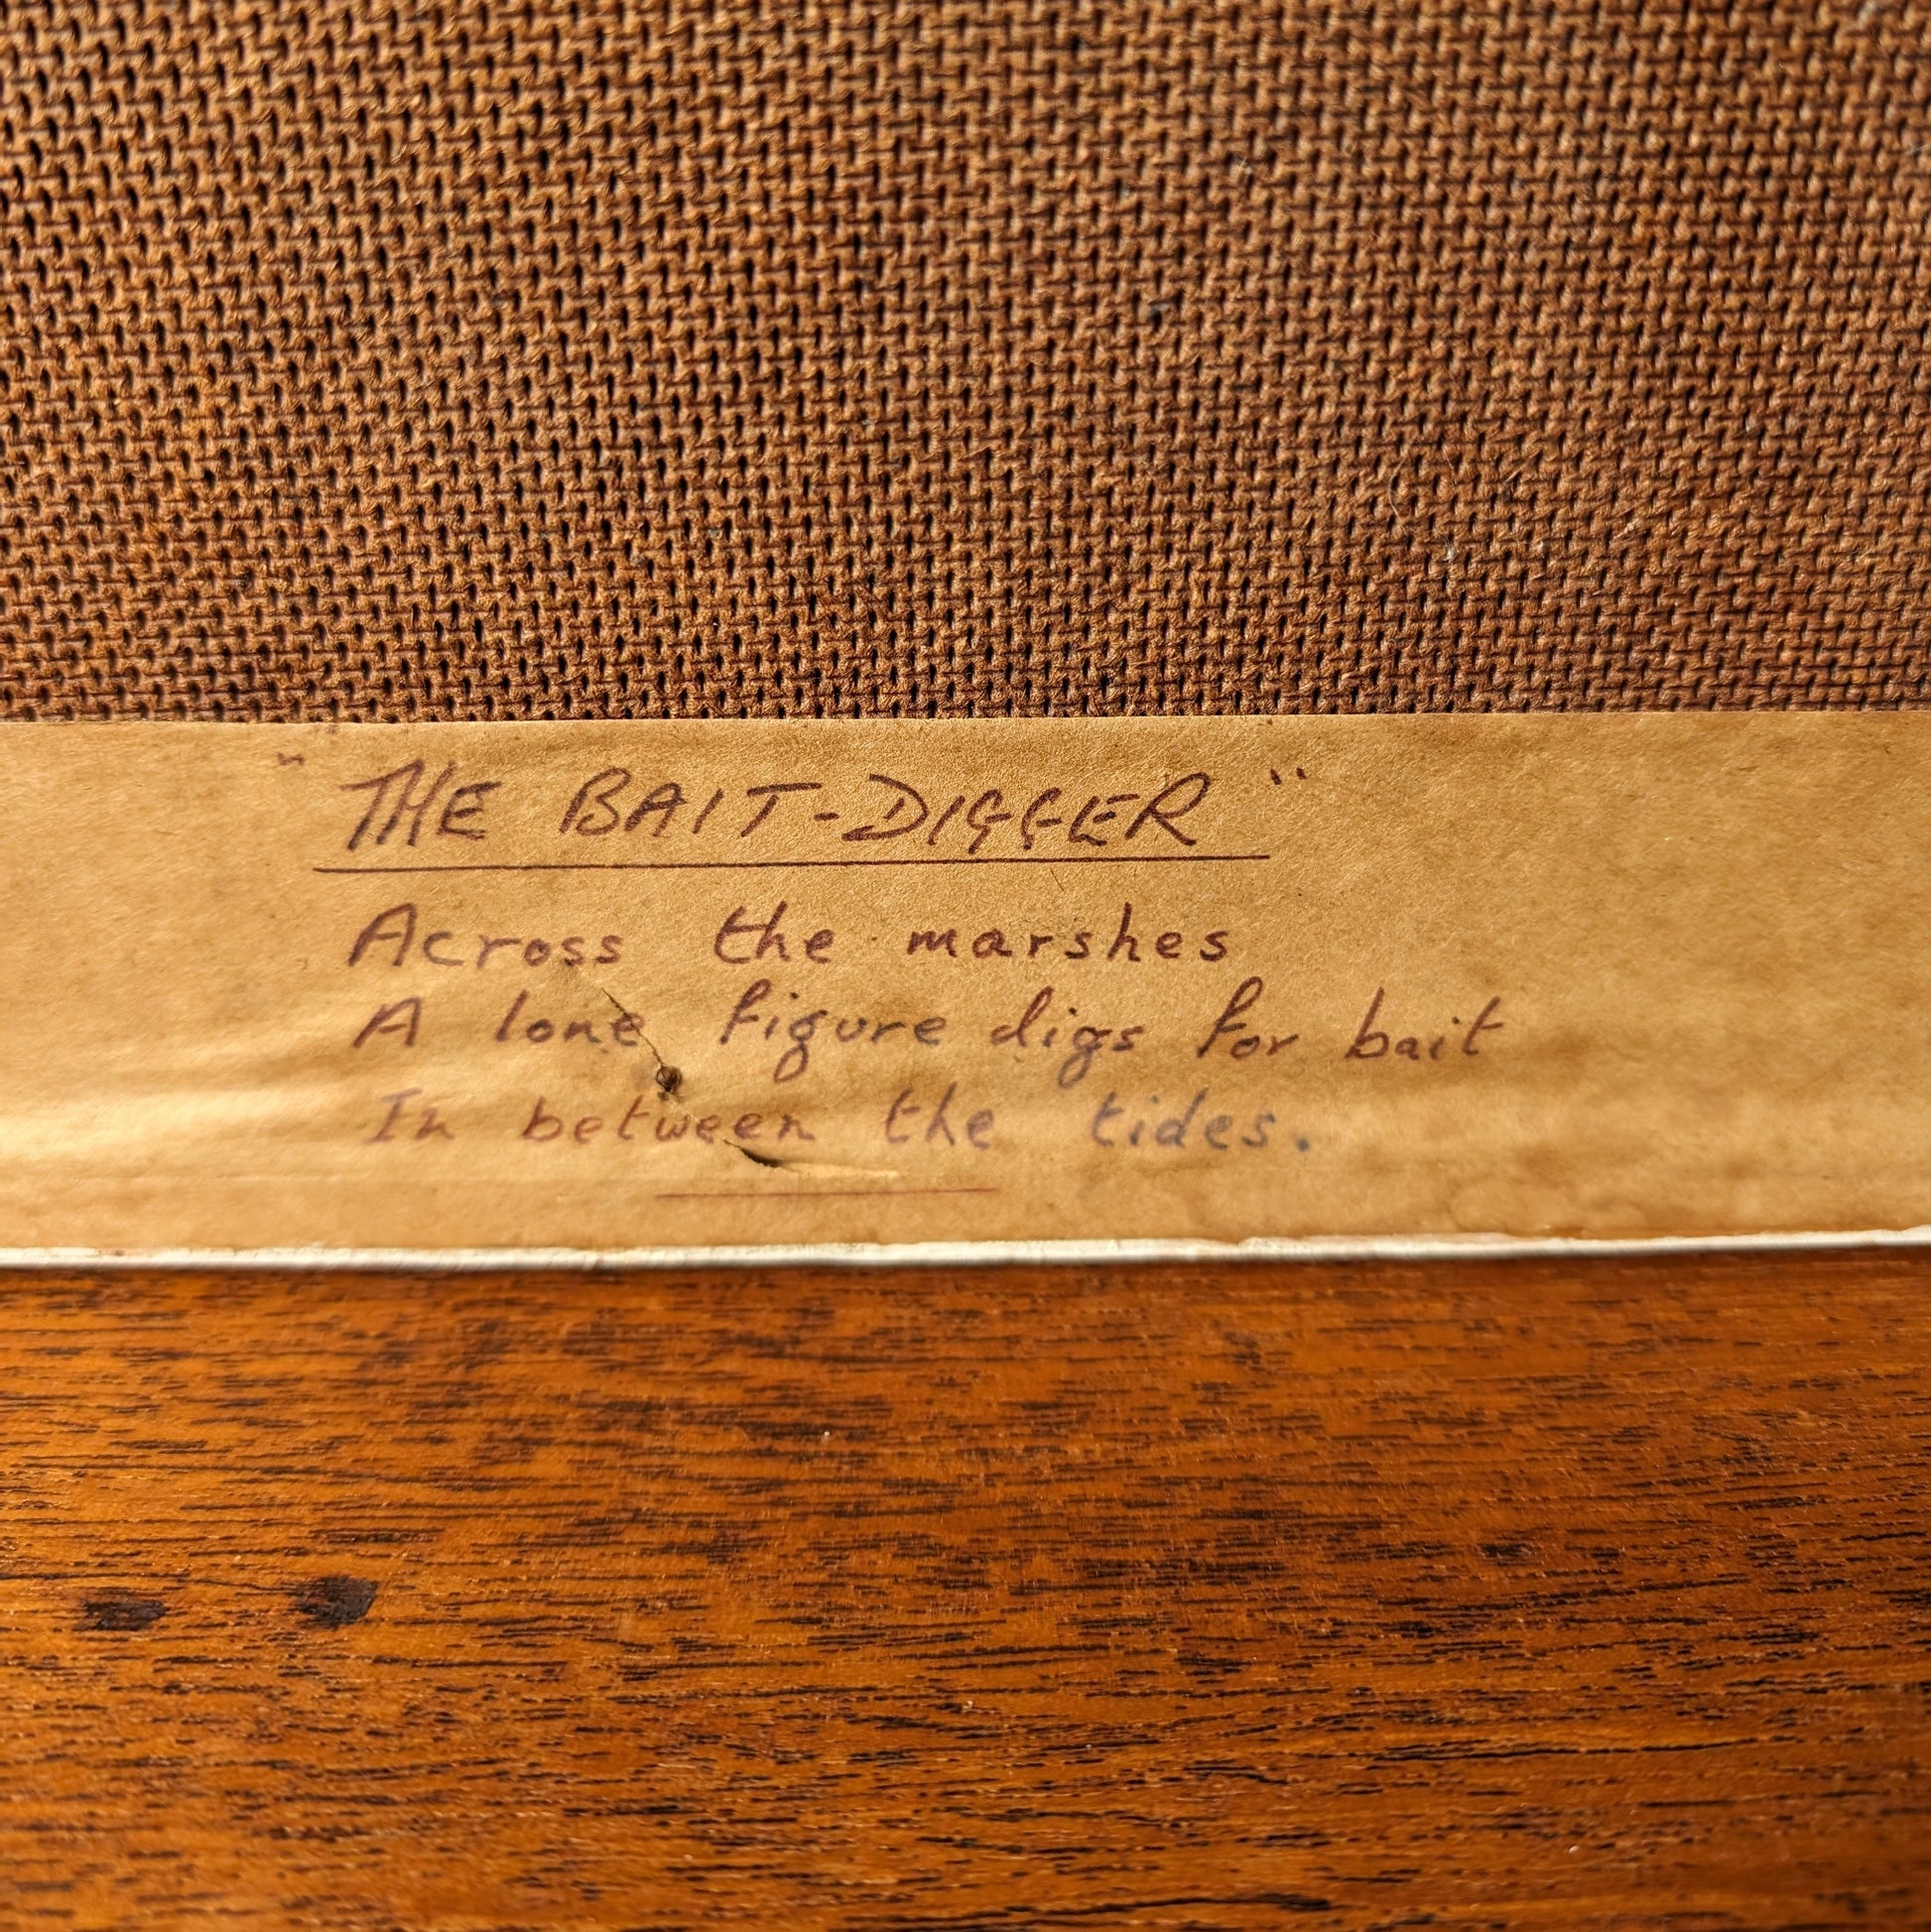 "THE BAIT-DIGGER"
Across the marshes
A lone figure digs for bait
In between the tides.